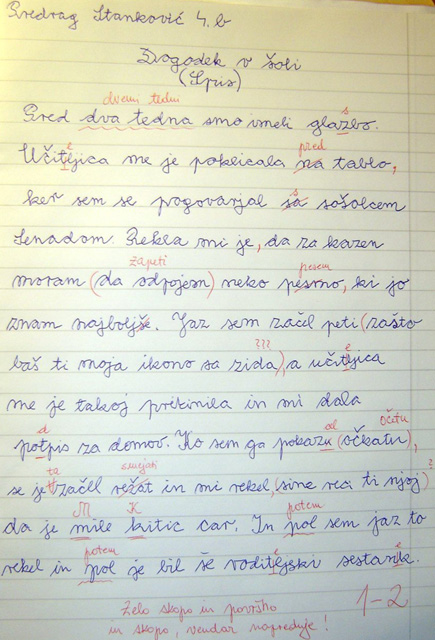 Predrag Stanković 4. b
Dogodek v šoli
(Spis)
dvemi tedni
Pred dva tedna smo imeli glazbo.
s
e
pred
Učitejica me je poklicala na tablo,
s
ker sem se pogovarjal sa sošolcem
Senadom. Rekla mi je, da za kazen
zapeti
pesem
moram (da odpojem) neko pesmo, ki jo
znam najboljše. Jaz sem začil peti (zašto
???
e
baš ti moja ikono sa zida), a učitejica
me je takoj prekinila in mi dala
d
od
očetu
potpis za domov. Ko sem ga pokazu (očkatu),
ta
smejati
se je začel režat in mi rekel, (sine reci ti njoj)
?
M
K
potem
da je mile kitic car. In pol sem jaz to
potem
e
e
rekel in pol je bil še roditejski sestanik.
Zelo skopo in površno
in skopo, vendar napreduje!
1-2